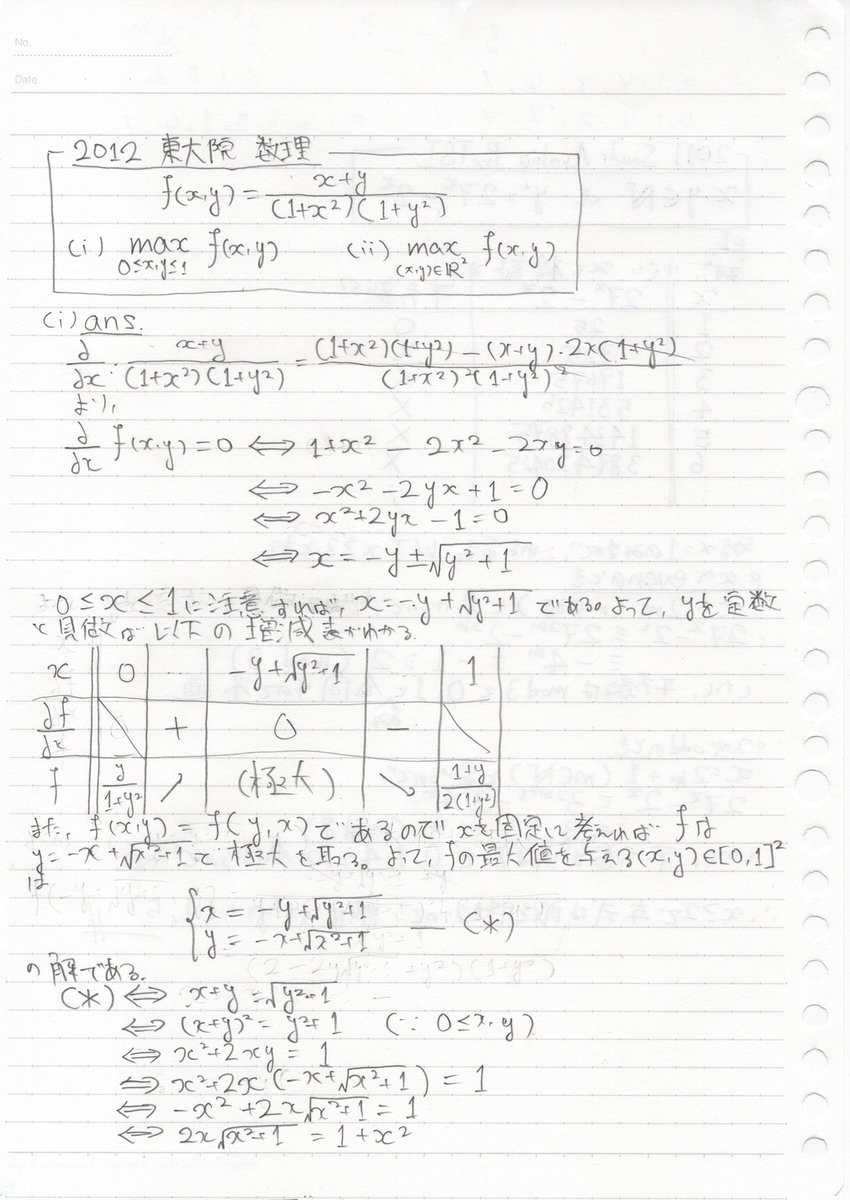 No.
Date
2012 東大院 数理
f(x,y) = (x+y)/((1+x²)(1+y²))
(i) max_{0≤x,y≤1} f(x,y) (ii) max_{(x,y)∈ℝ²} f(x,y)
(i) ans.
∂/∂x · (x+y)/((1+x²)(1+y²)) = ((1+x²)(1+y²) - (x+y)·2x(1+y²))/((1+x²)²(1+y²)²)
より,
∂/∂x f(x,y) = 0 ⟺ 1+x² - 2x² - 2xy = 0
⟺ -x² - 2yx + 1 = 0
⟺ x² + 2yx - 1 = 0
⟺ x = -y ± √(y²+1)
0 ≤ x ≤ 1 に注意すれば, x = -y + √(y²+1) である。よって, yを定数
と見做せば以下の増減表がわかる.
x 0 -y+√(y²+1) 1
∂f/∂x + 0 -
f y/(1+y²) ↗ (極大) ↘ (1+y)/(2(1+y²))
また, f(x,y) = f(y,x) であるので xを固定に考えれば fは
y = -x + √(x²+1) で極大を取る。よって, fの最大値を与える(x,y)∈[0,1]²
は
{ x = -y + √(y²+1)
y = -x + √(x²+1) — (*)
の解である.
(*) ⟺ x+y = √(y²+1)
⟺ (x+y)² = y²+1 (∵ 0≤x,y)
⟺ x²+2xy = 1
⟺ x²+2x(-x+√(x²+1)) = 1
⟺ -x²+2x√(x²+1) = 1
⟺ 2x√(x²+1) = 1+x²